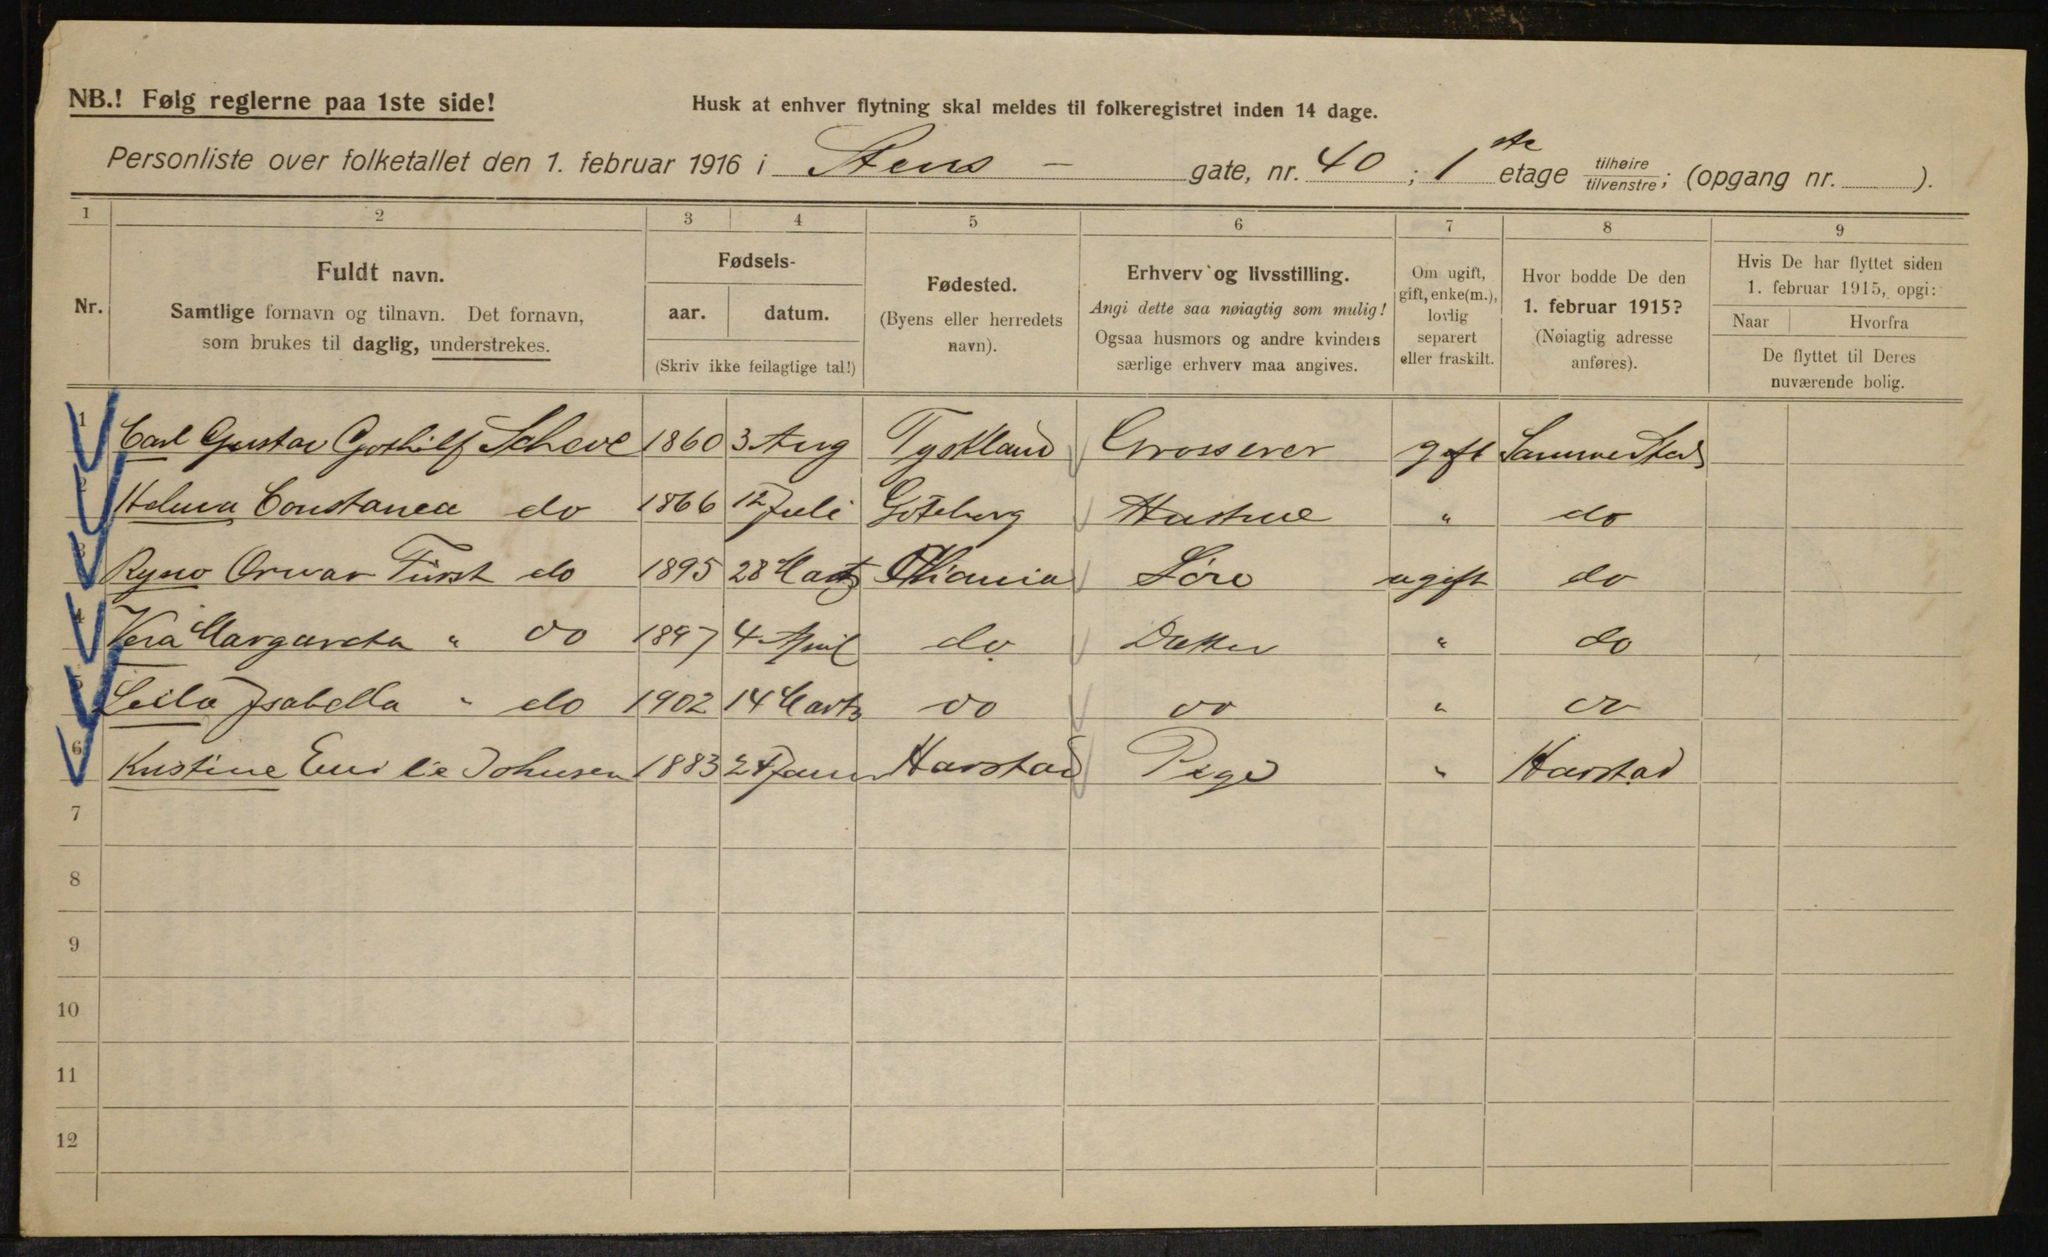 NB.! Følg reglerne paa 1ste side!
Husk at enhver flytning skal meldes til folkeregistret inden 14 dage.
Personliste over folketallet den 1. februar 1916 i Stens - gate, nr. 40 ; 1ste etage tilhøire/tilvenstre; (opgang nr. ).
1 2 3 4 5 6 7 8 9
Nr.
Fuldt navn.
Samtlige fornavn og tilnavn. Det fornavn,
som brukes til daglig, understrekes.
Fødsels-
aar. datum.
(Skriv ikke feilagtige tal!)
Fødested.
(Byens eller herredets
navn).
Erhverv og livsstilling.
Angi dette saa nøiagtig som mulig!
Ogsaa husmors og andre kvinders
særlige erhverv maa angives.
Om ugift,
gift, enke(m.),
lovlig
separert
eller fraskilt.
Hvor bodde De den
1. februar 1915?
(Nøiagtig adresse
anføres).
Hvis De har flyttet siden
1. februar 1915, opgi:
Naar Hvorfra
De flyttet til Deres
nuværende bolig.
1 Carl Gustav Gothilf Scheve 1860 3 Aug Tyskland Grosserer gift Samme Sted
2 Helma Constance do 1866 12 Juli Göteborg Hustrue " do
3 Ryno Orvar Fürst do 1895 28 Marts Khiania Søn ugift do
4 Vera Margareta " do 1897 4 April do Datter " do
5 Leila Isabella " do 1902 14 Marts do do " do
6 Kristine Emilie Johnsen 1883 24 Januar Harstad Pige " Harstad
7
8
9
10
11
12